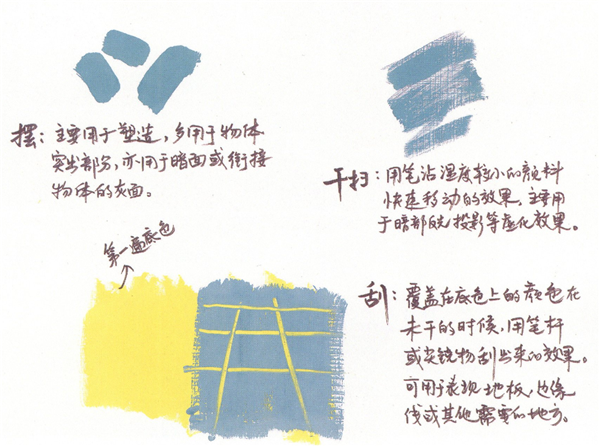 摆：主要用于塑造，多用于物体
突出部分，亦用于暗面或衔接
物体的灰面。
干扫：用笔沾湿度较小的颜料
快速移动的效果。主要用
于暗部或投影等虚化效果。
第一遍底色
刮：覆盖在底色上的颜色在
未干的时候，用笔杆
或尖锐物刮出来的效果。
可用于表现地板，边缘
线或其他需要的地方。